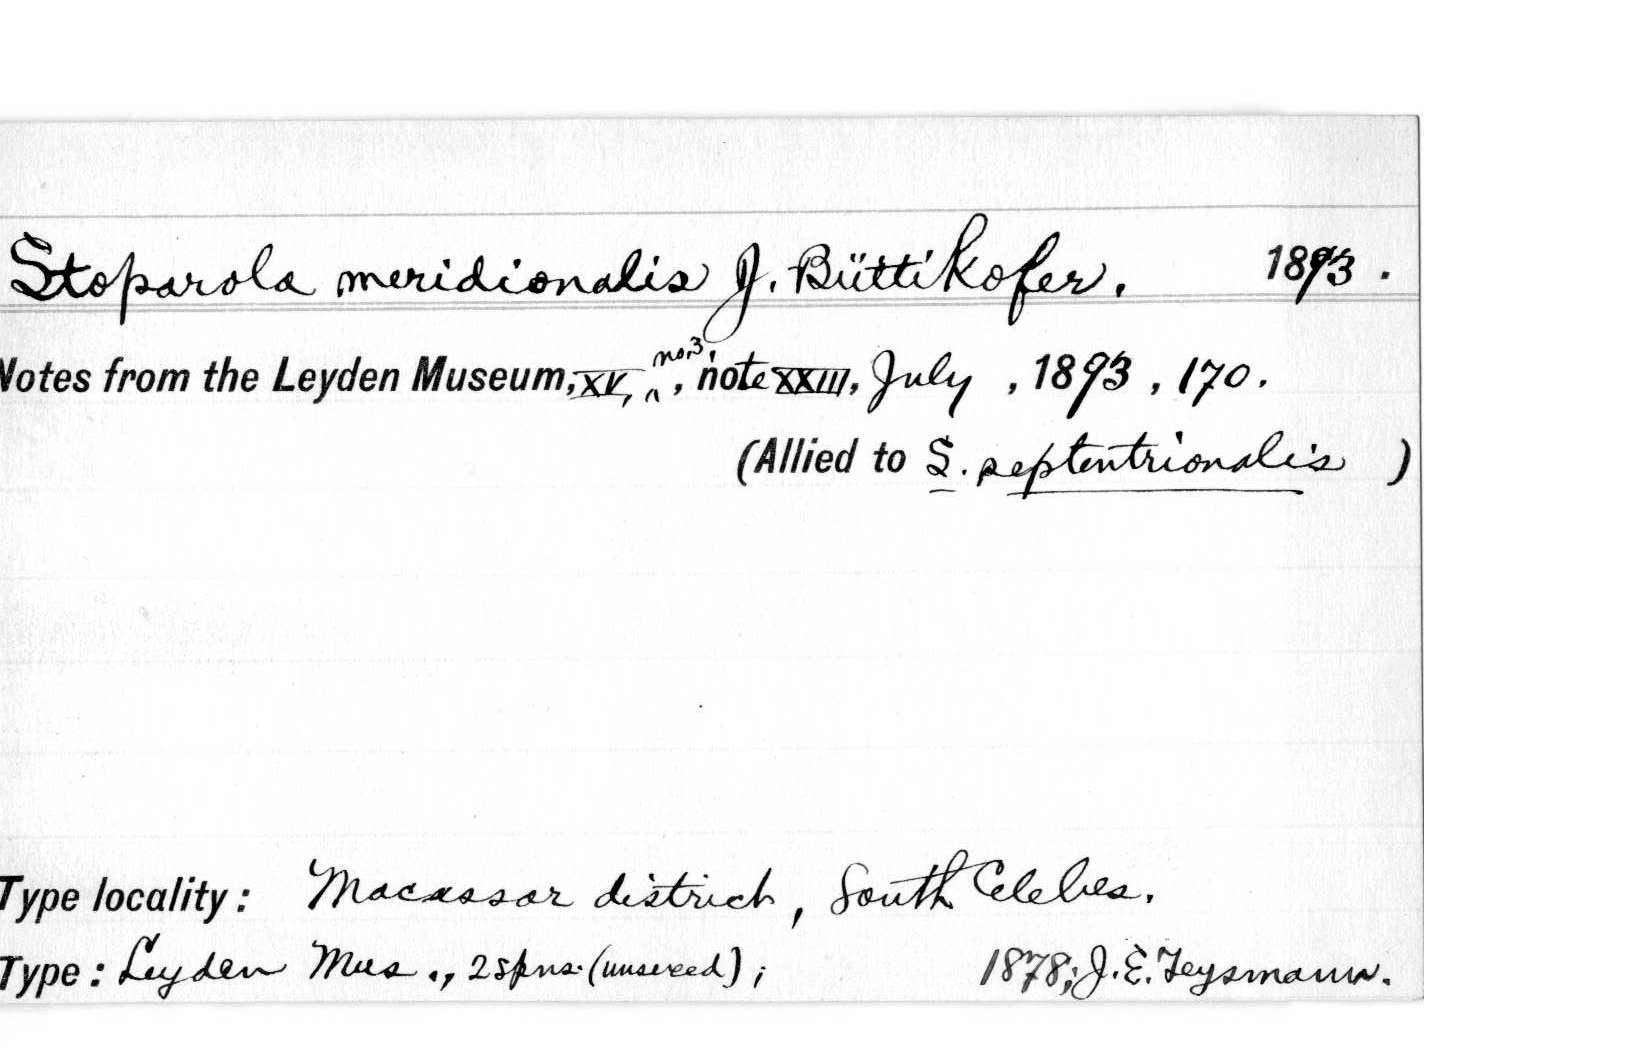 Stoparola meridionalis J. Büttikofer. 1893.
Notes from the Leyden Museum, XV, no. 3, note XXIII, July, 1893, 170.
(Allied to S. septentrionalis)
Type locality: Macassar district, South Celebes.
Type: Leyden Mus., 2 spns. (unsexed); 1878; J. E. Teysmann.